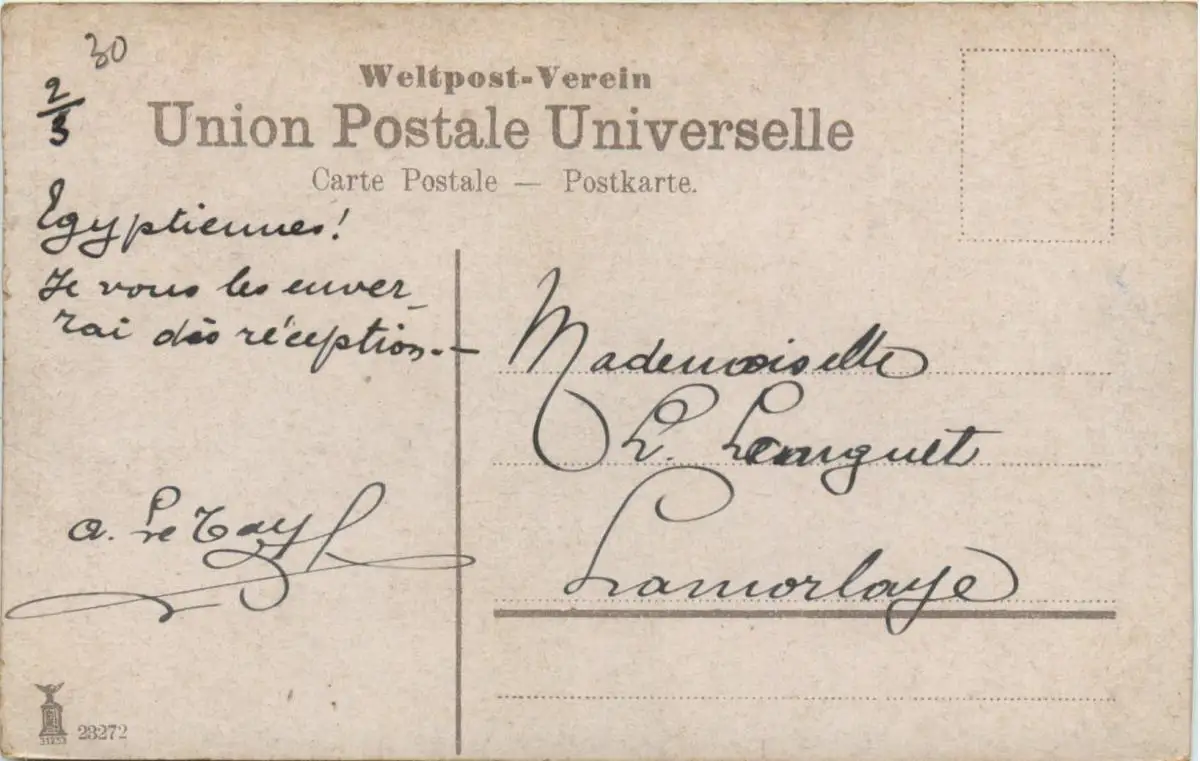 30
2/3
Weltpost-Verein
Union Postale Universelle
Carte Postale — Postkarte.
Egyptiennes!
Je vous les enver_
rai dès réception.—
a. Le Tay
Mademoiselle
L. Longuet
Lamorlaye
23272